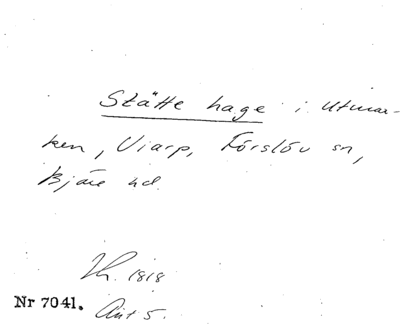 Stätte hage i utmar-
ken, Viarp, Förslöv sn,
Bjäre hd.
Kr. 1818
Nr 7041. Akt 5.